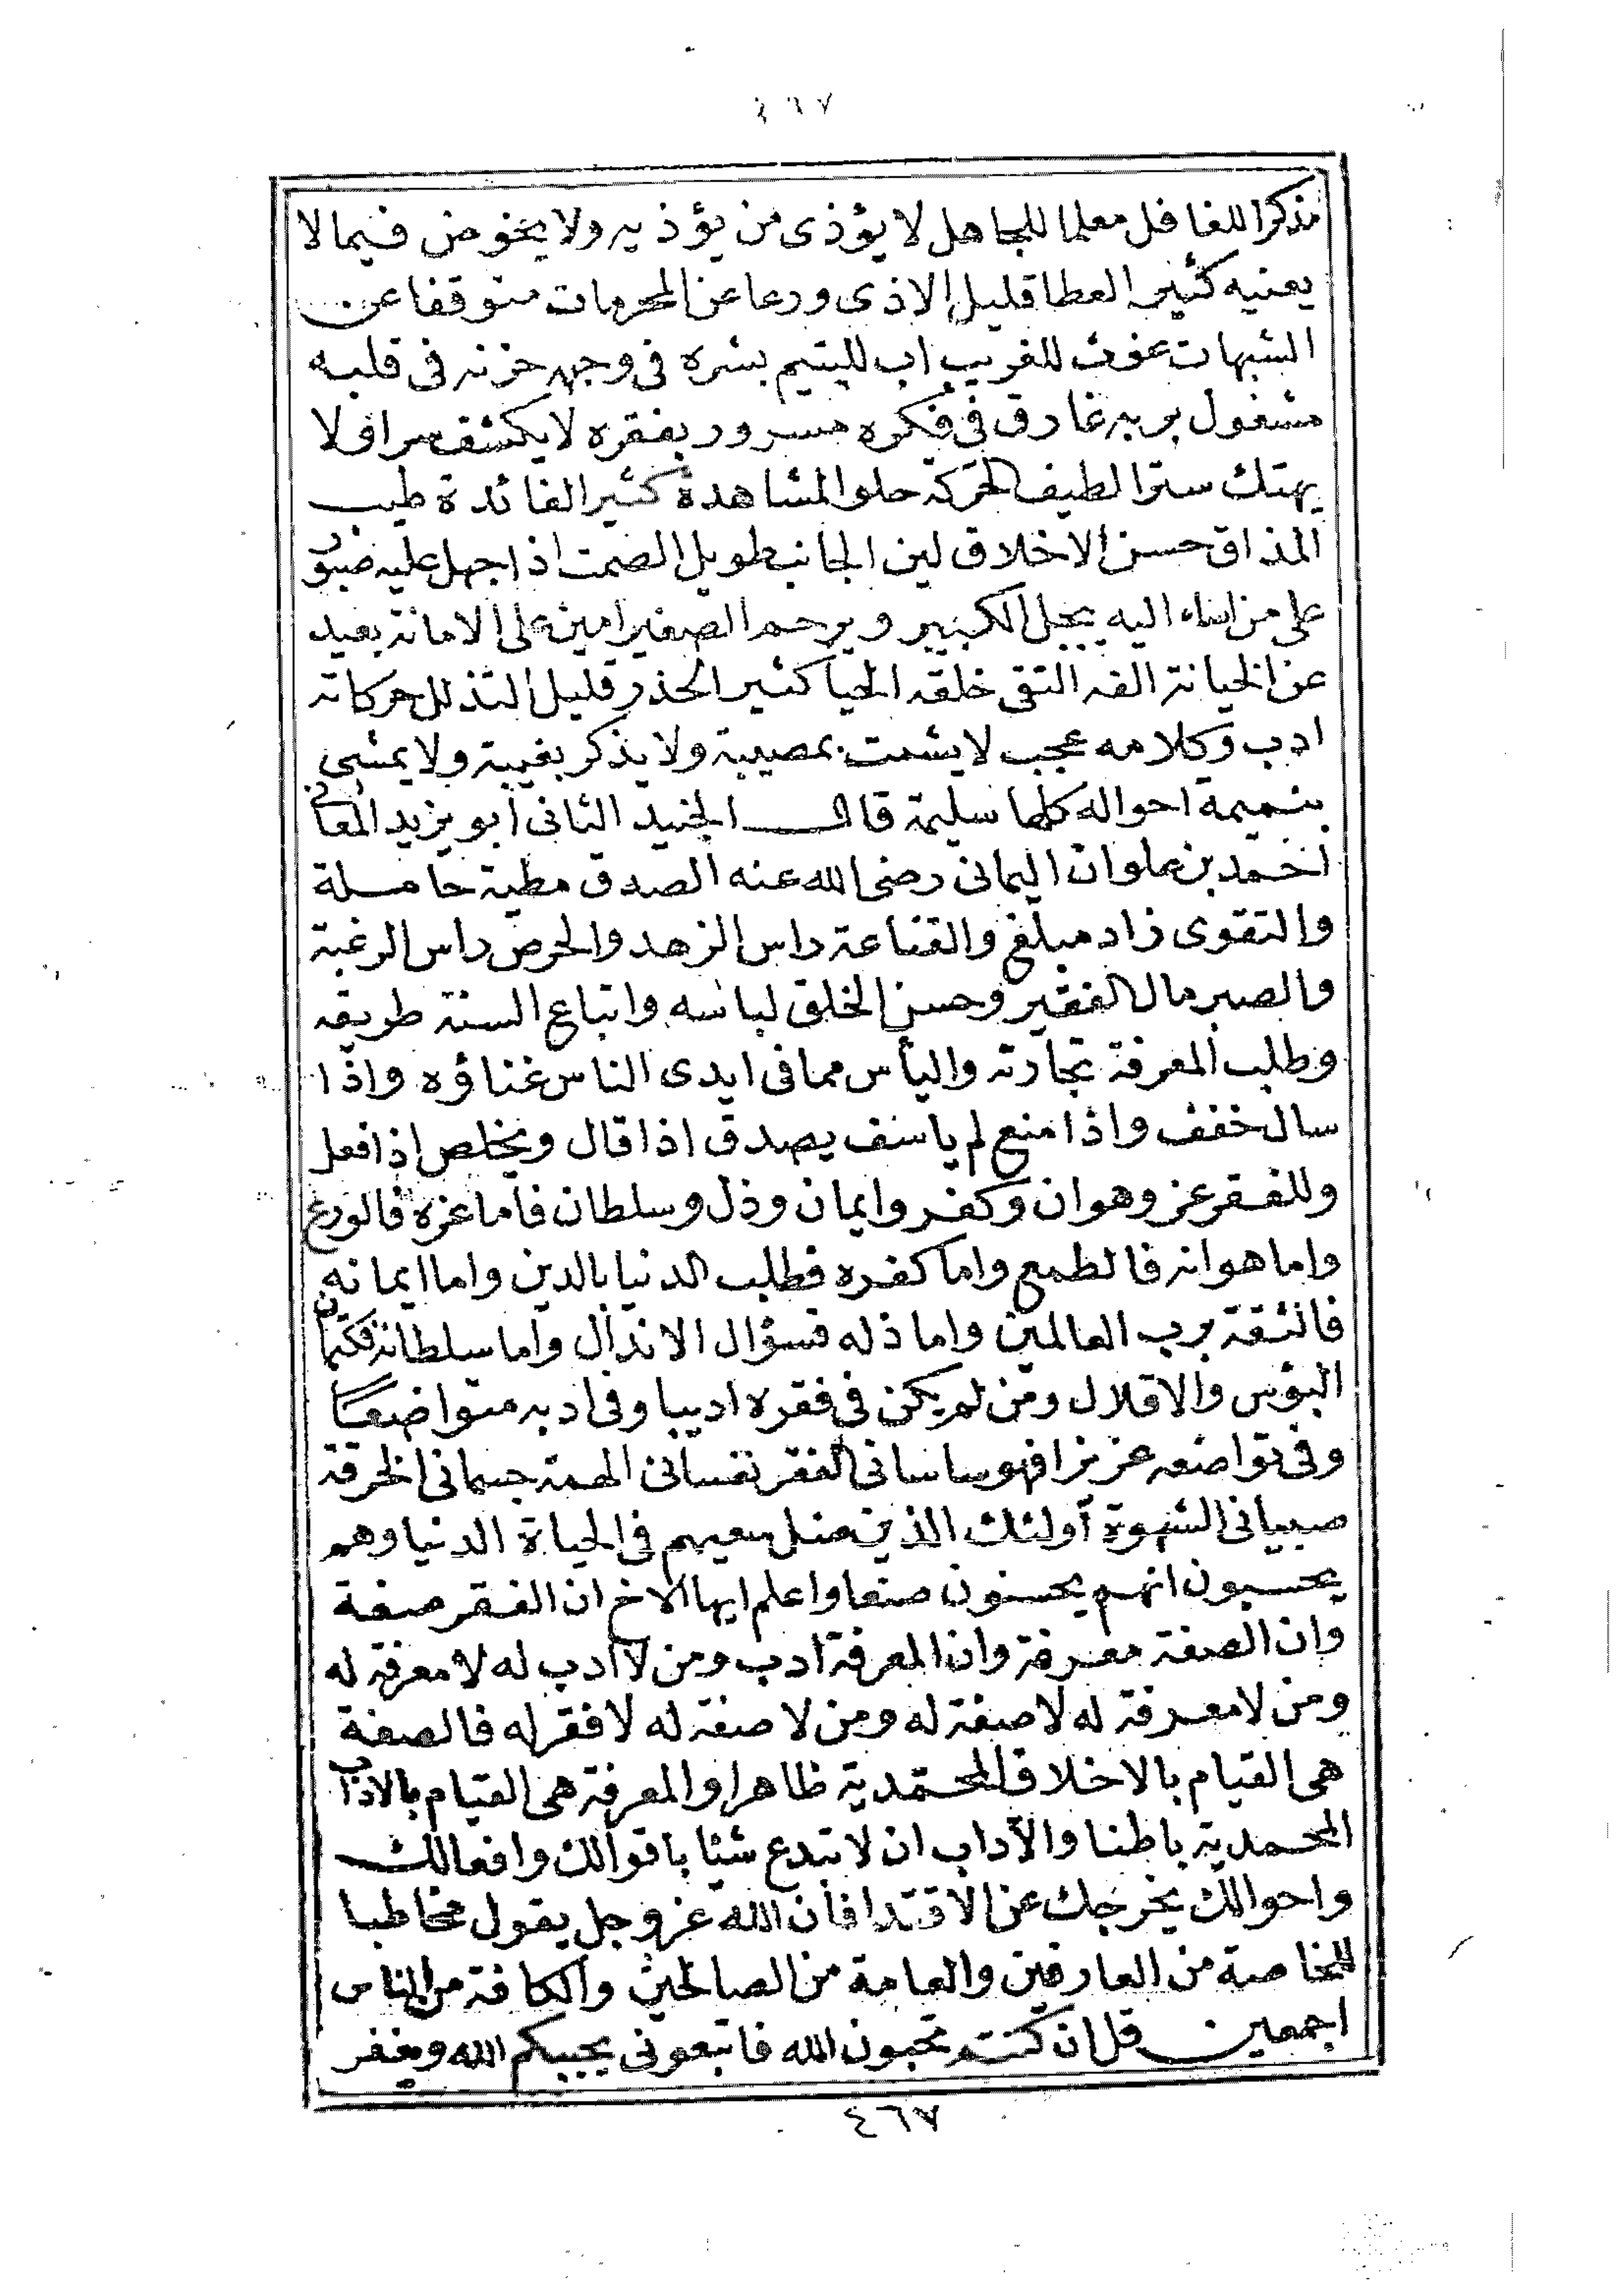 ٤٦٧
مذكرا للغافل معلما للجاهل لا يؤذى من يؤذيه ولا يخوض فيما لا
يعنيه كثير العطا قليل الاذى ورعا عن المحرمات متوقفا عن
الشبهات غوث للغريب اب لليتيم بشره فى وجهه حزنه فى قلبه
مشغول بربه غارق فى فكره مسرور بفقره لا يكشف سرا ولا
يهتك سترا لطيف الحركة حلو المشاهدة كثير الفائدة طيب
المذاق حسن الاخلاق لين الجانب طويل الصمت اذا جهل عليه صبور
على من اساء اليه يبجل الكبير ويرحم الصغير امين على الامانة بعيد
عن الخيانة الفه التقى خلقه الحيا كثير الحذر قليل التذلل حركاته
ادب وكلامه عجب لا يشمت بمصيبة ولا يذكر بغيبة ولا يمشى
بنميمة احواله كلها سليمة قال الجنيد الثانى أبو يزيد المعانى
أحمد بن علوان اليمانى رضى الله عنه الصدق مطية حاملة
والتقوى زاد مبلغ والقناعة راس الزهد والحرص راس الرغبة
والصبر مال الفقير وحسن الخلق لباسه واتباع السنة طريقه
وطلب المعرفة تجارته والياس مما فى ايدى الناس غناؤه واذا
سال خفف واذا منع لم ياسف يصدق اذا قال ويخلص اذا فعل
وللفقر عز وهوان وكفر وايمان وذل وسلطان فأما عزه فالورع
واما هوانه فالطمع واما كفره فطلب الدنيا بالدين واما ايمانه
فالثقة برب العالمين واما ذله فسؤال الانذال وأما سلطانه فكتمان
البؤس والاقلال ومن لم يكن فى فقره اديبا وفى ادبه متواضعا
وفى تواضعه عزيزا فهو ساسانى الفقر نفسانى الهمة جسمانى الخرقة
صبيانى الشهوة أولئك الذين ضل سعيهم فى الحياة الدنيا وهم
يحسبون انهم يحسنون صنعا واعلم ايها الاخ ان الفقر صفة
وان الصفة معرفة وان المعرفة ادب ومن لا أدب له لا معرفة له
ومن لا معرفة له لا صفة له ومن لا صفة له لا فقر له فالصفة
هى القيام بالاخلاق المحمدية ظاهرا والمعرفة هى القيام بالاداب
المحمدية باطنا والآداب ان لا تبدع شئا باقوالك وافعالك
واحوالك يخرجك عن الاقتدا فان الله عز وجل يقول مخاطبا
للخاصة من العارفين والعامة من الصالحين والكافة من الناس
اجمعين قل ان كنتم تحبون الله فاتبعونى يحببكم الله ويغفر
٤٦٧